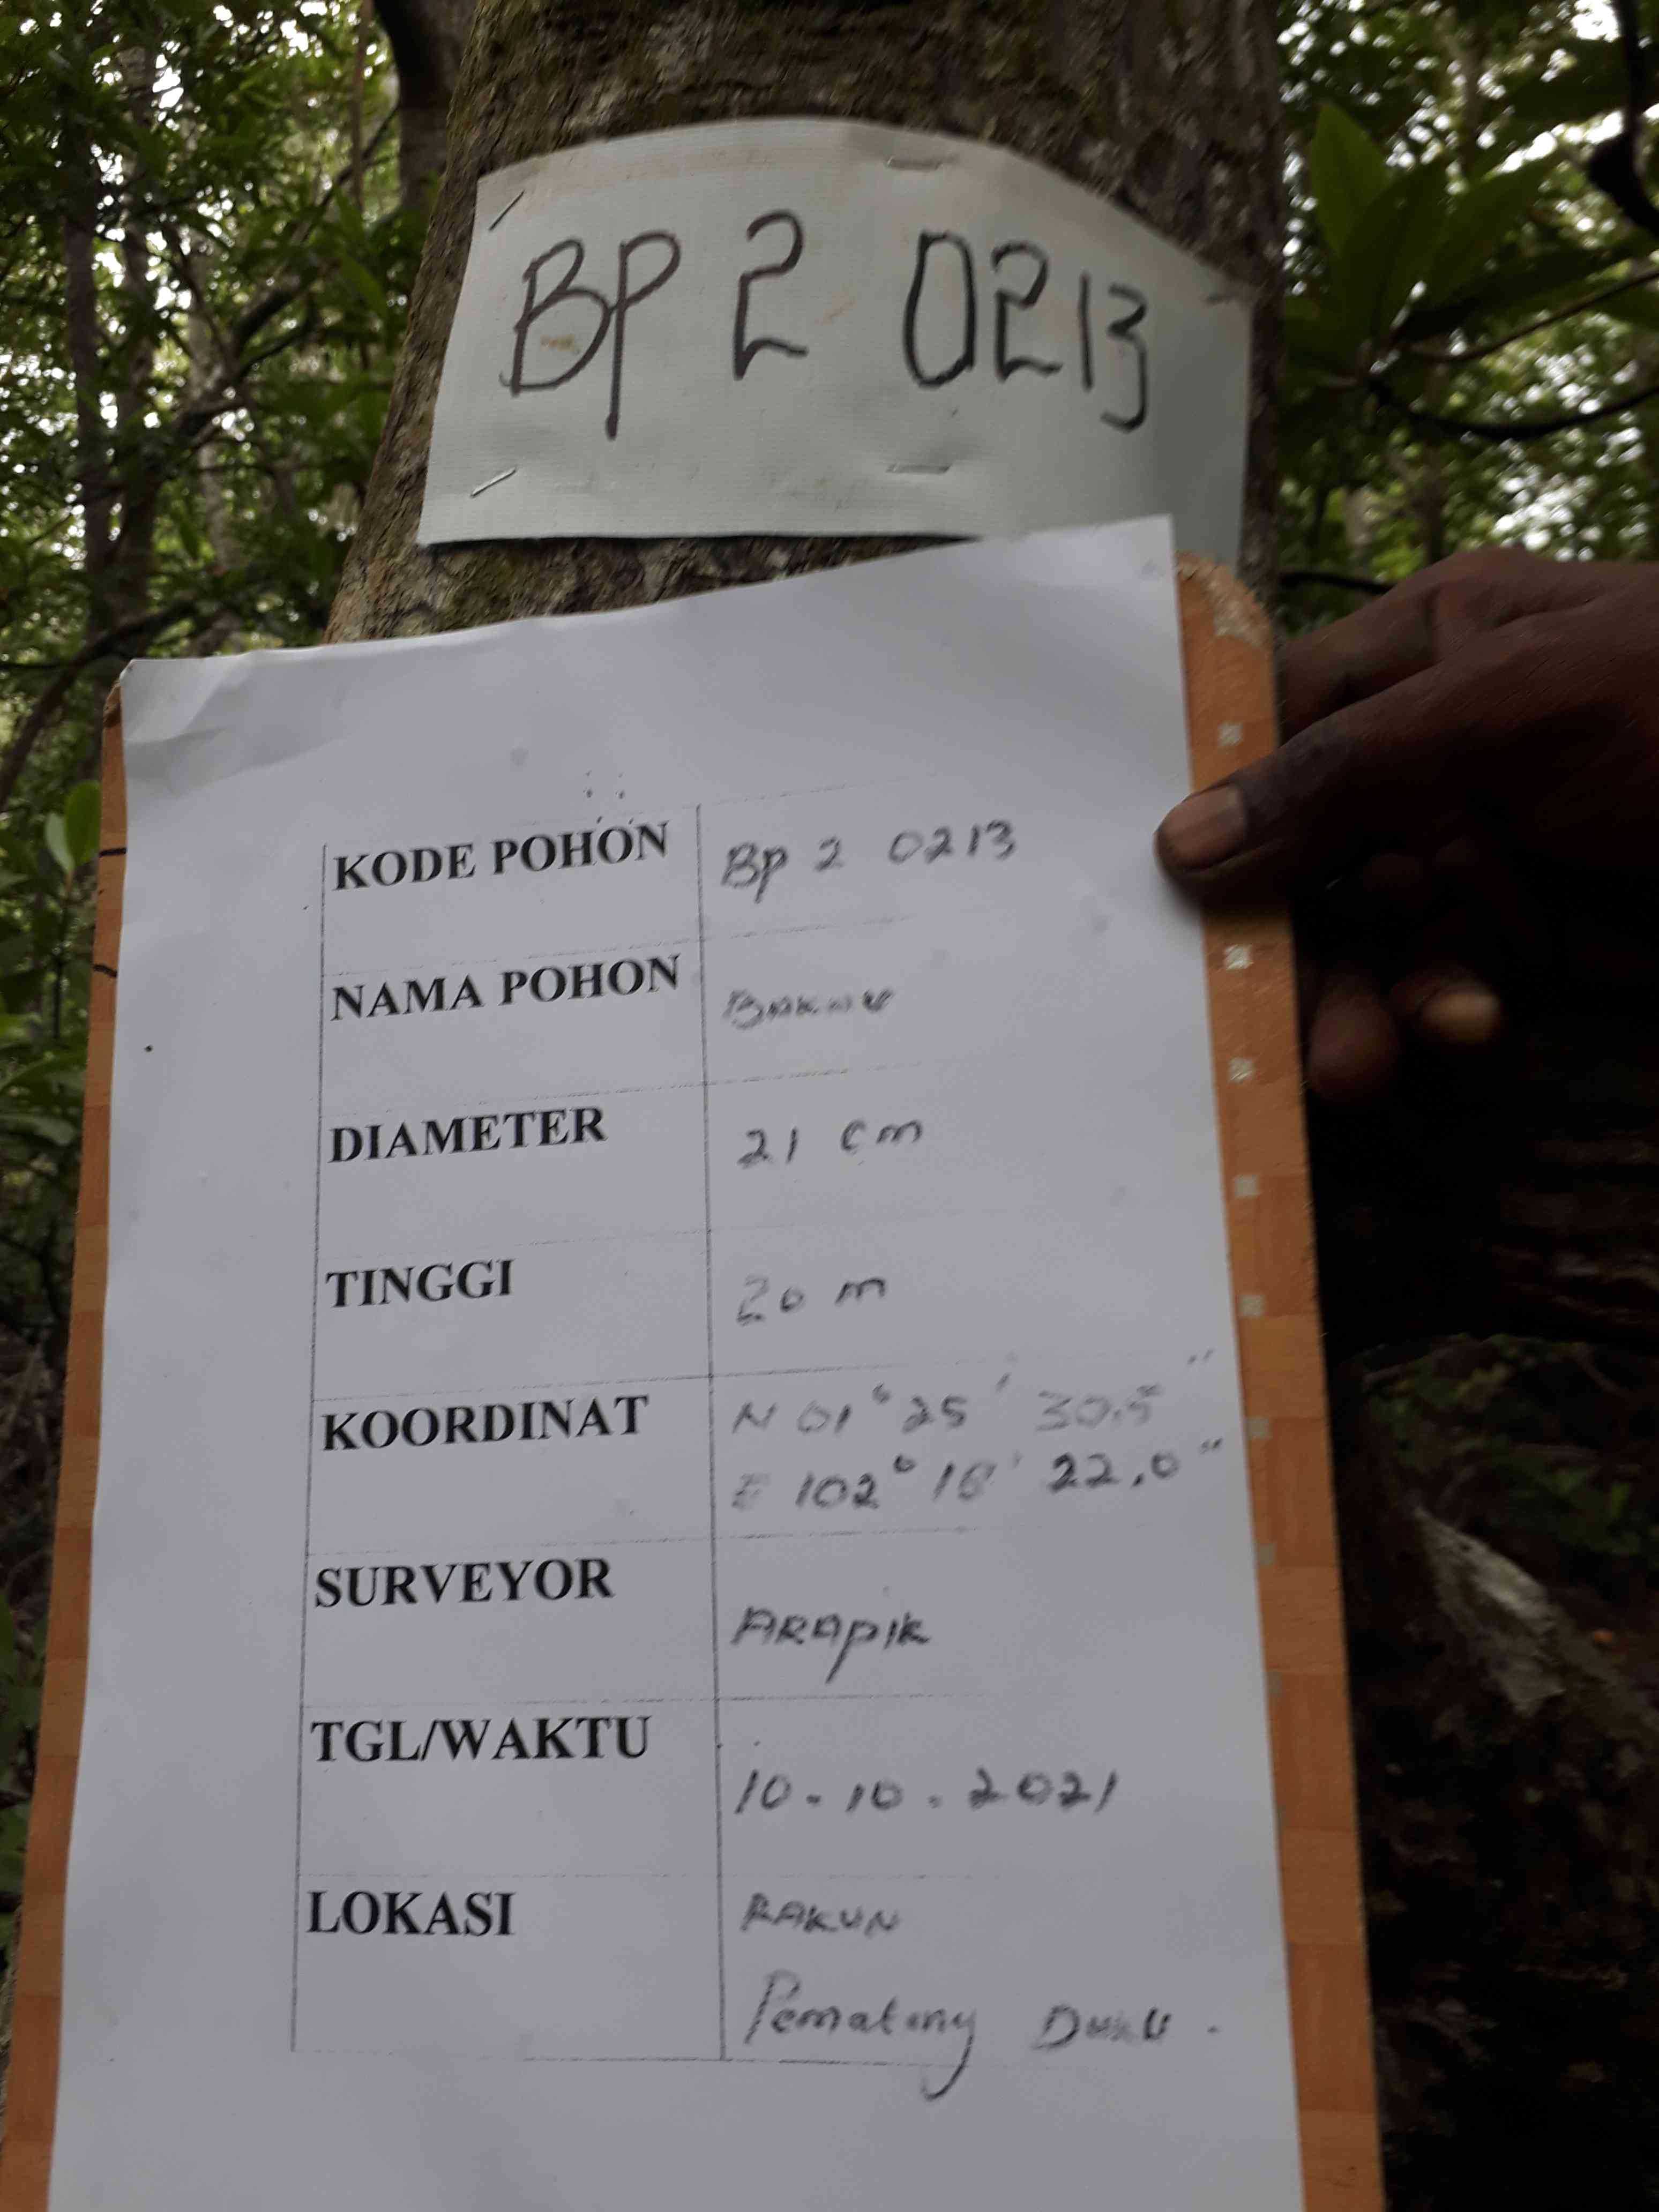 BP 2 0213
KODE POHON Bp 2 0213
NAMA POHON BAKAU
DIAMETER 21 cm
TINGGI 20 m
KOORDINAT N 01° 25' 30.5"
E 102° 16' 22.0"
SURVEYOR ARAPIK
TGL/WAKTU 10-10.2021
LOKASI RAKUN
Pematang Duku.